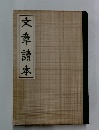 文章讀本